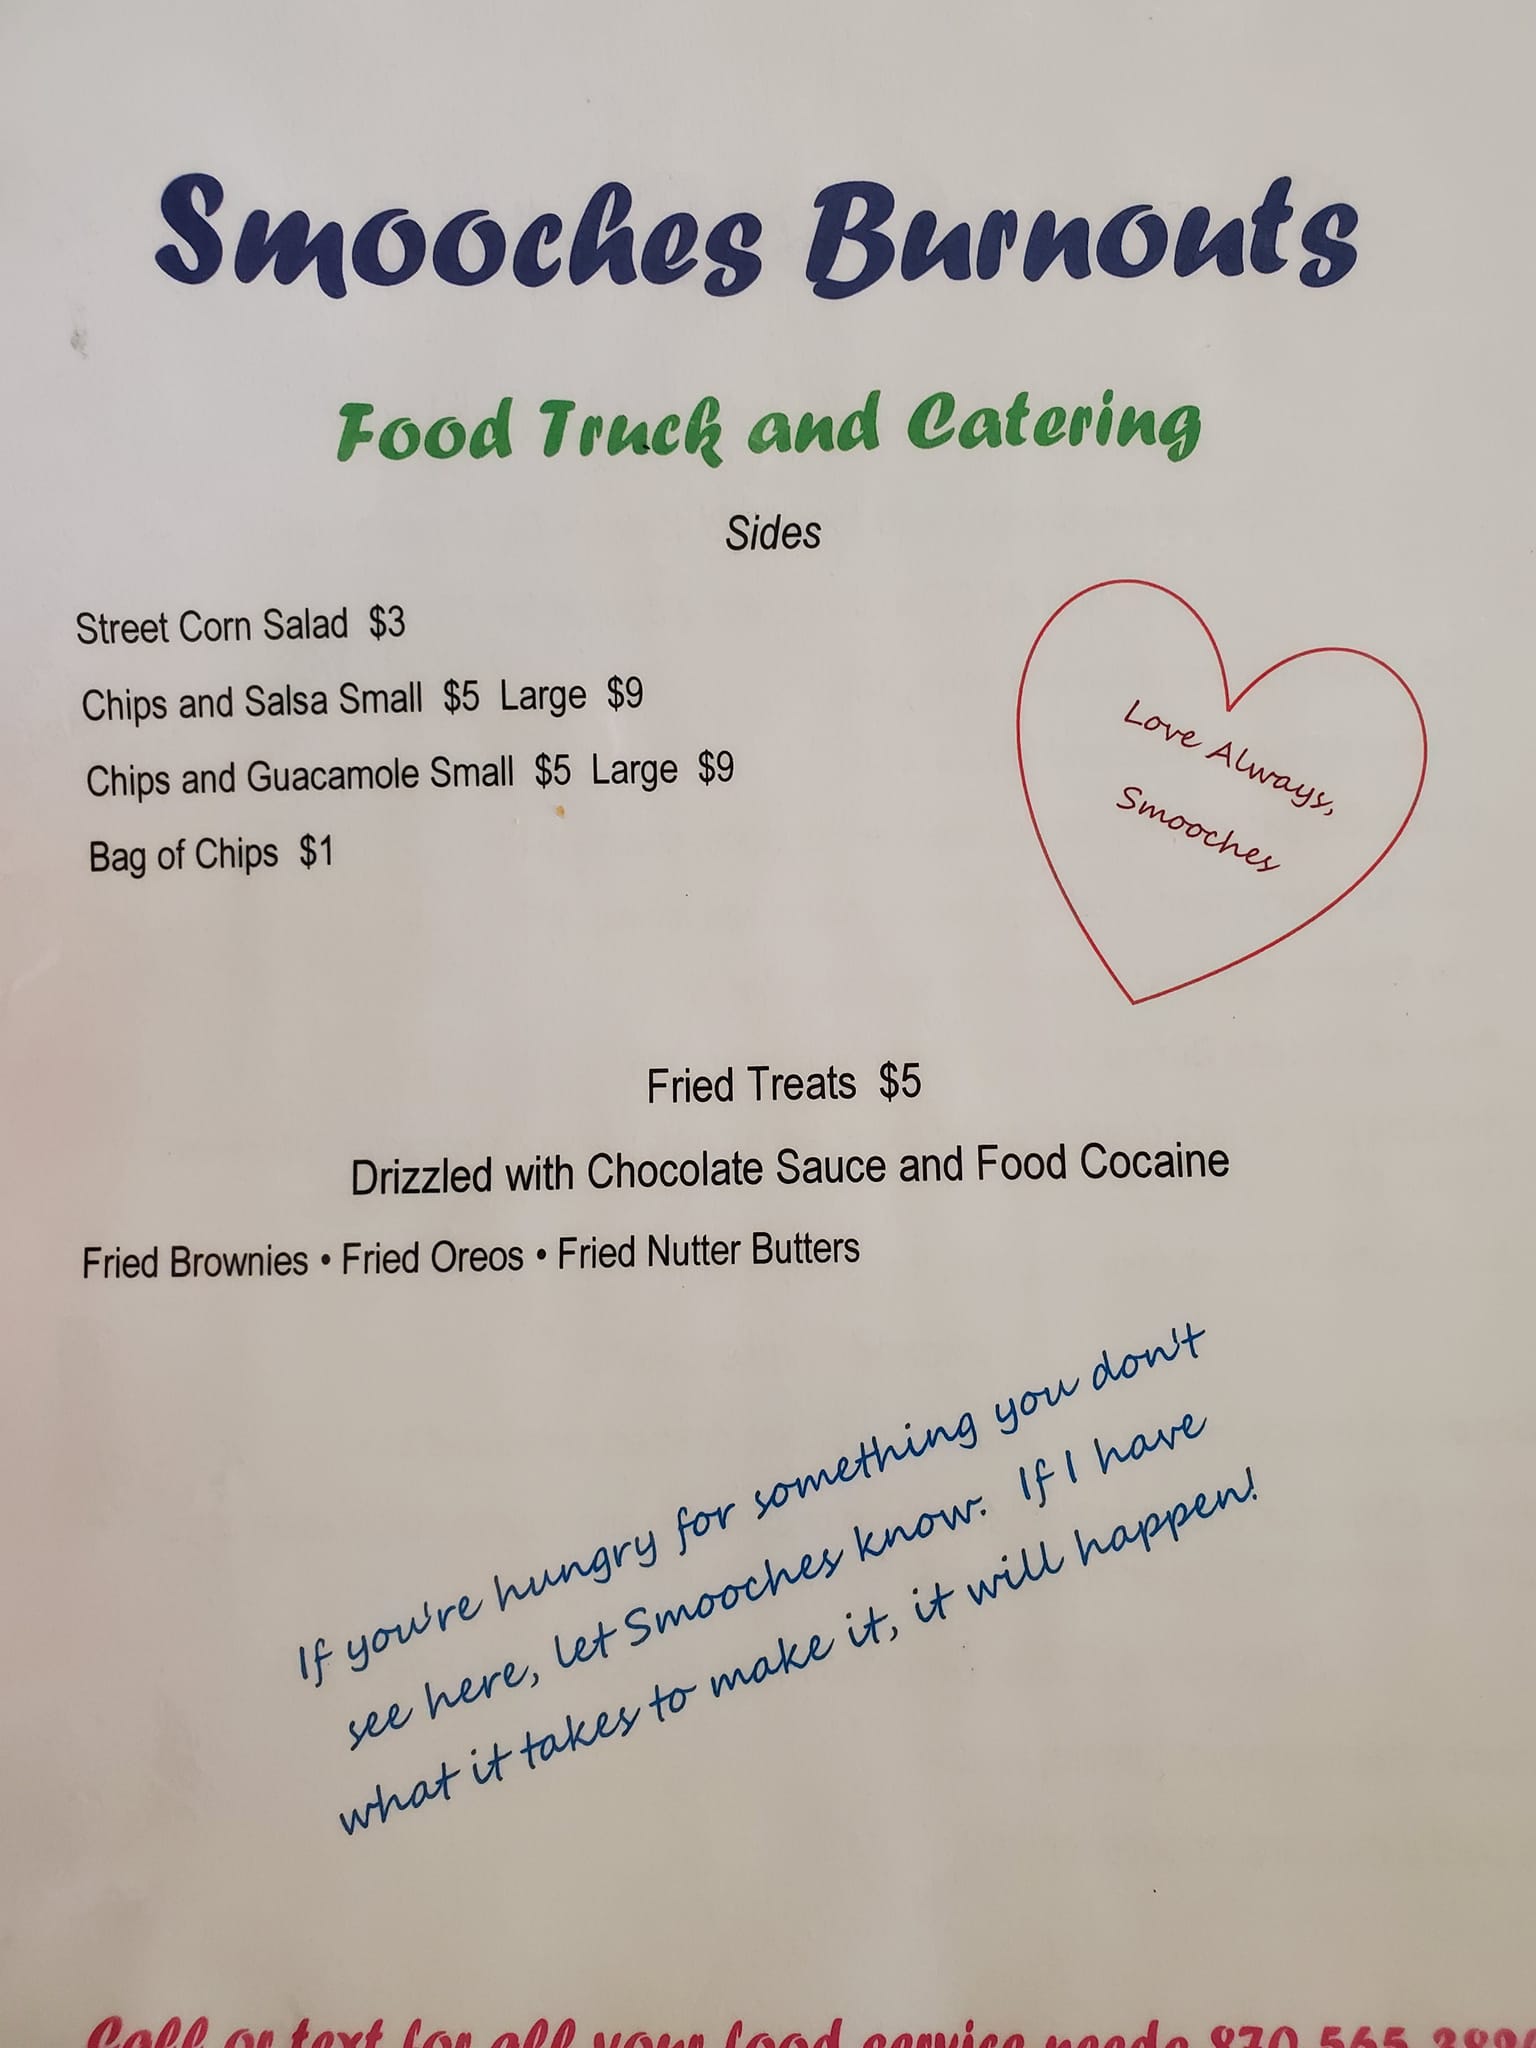 Smooches Burnouts
Food Truck and Catering
Sides
Street Corn Salad $3
Chips and Salsa Small $5 Large $9
Chips and Guacamole Small $5 Large $9
Bag of Chips $1
Love Always,
Smooches
Fried Treats $5
Drizzled with Chocolate Sauce and Food Cocaine
Fried Brownies • Fried Oreos • Fried Nutter Butters
If you're hungry for something you don't
see here, let Smooches know. If I have
what it takes to make it, it will happen!
Call or text for all your food service needs 870 565